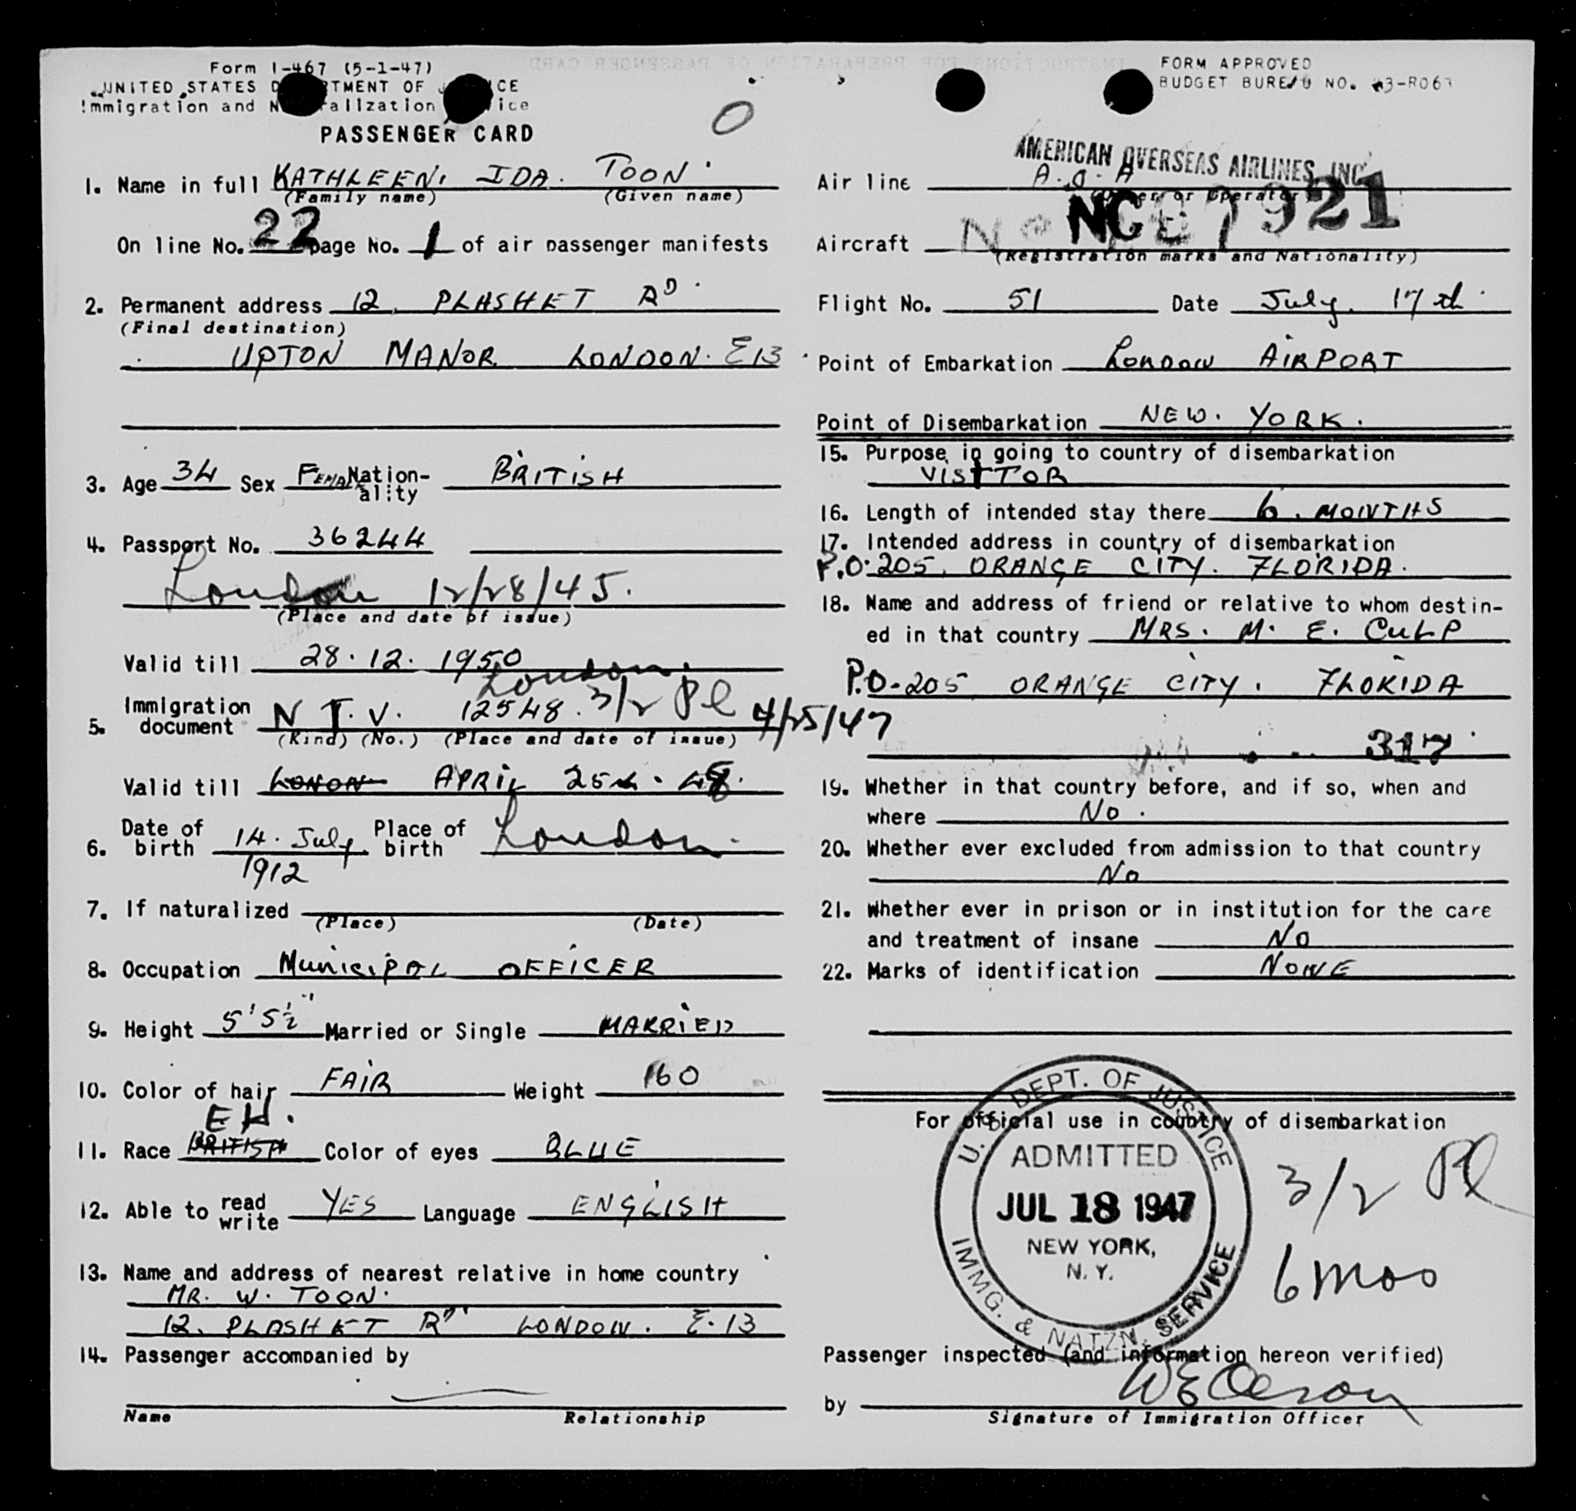 Form I-467 (5-1-47)
UNITED STATES DEPARTMENT OF JUSTICE
Immigration and Naturalization Service
PASSENGER CARD
O
1. Name in full KATHLEEN. IDA. TOON.
(Family name) (Given name)
On line No. 22 page No. 1 of air passenger manifests
2. Permanent address 12, PLASHET RD.
(Final destination)
UPTON MANOR LONDON. E13
3. Age 34 Sex FEMALE Nationality BRITISH
4. Passport No. 36244
London 12/28/45.
(Place and date of issue)
Valid till 28.12.1950
London.
5. Immigration document N T. V. 12548. 3/2 Pl 4/25/47
(Kind) (No.) (Place and date of issue)
Valid till LONDON APRIL 25th. 48.
6. Date of birth 14. July 1912 Place of birth London.
7. If naturalized
(Place) (Date)
8. Occupation MUNICIPAL OFFICER
9. Height 5'5½" Married or Single MARRIED
10. Color of hair FAIR Weight 160
EH.
11. Race BRITISH Color of eyes BLUE
12. Able to read write YES Language ENGLISH
13. Name and address of nearest relative in home country
MR. W. TOON.
12. PLASHET RD. LONDON. E.13
14. Passenger accompanied by
Name Relationship
FORM APPROVED
BUDGET BUREAU NO. 43-R063
AMERICAN OVERSEAS AIRLINES, INC.
Air line A.O.A
(Owner or Operator)
Aircraft No NC 921
(Registration marks and Nationality)
Flight No. 51 Date July 17th.
Point of Embarkation LONDON AIRPORT
Point of Disembarkation NEW. YORK.
15. Purpose in going to country of disembarkation
VISITOR
16. Length of intended stay there 6. MONTHS
17. Intended address in country of disembarkation
P.O. 205, ORANGE CITY. FLORIDA.
18. Name and address of friend or relative to whom destin-
ed in that country MRS. M. E. CULP
P.O. 205 ORANGE CITY. FLORIDA
317
19. Whether in that country before, and if so, when and
where No.
20. Whether ever excluded from admission to that country
No
21. Whether ever in prison or in institution for the care
and treatment of insane No
22. Marks of identification NONE
For official use in country of disembarkation
U. S. DEPT. OF JUSTICE
ADMITTED
JUL 18 1947
NEW YORK,
N. Y.
IMMG. & NATZN. SERVICE
3/2 Pl
6 mos
Passenger inspected (and information hereon verified)
by
Signature of Immigration Officer